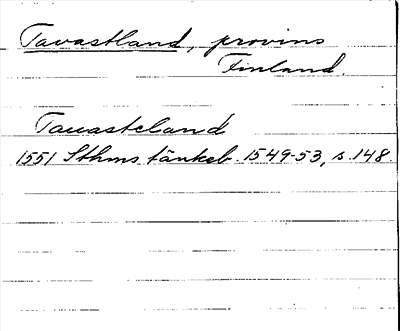 Tavastland, provins
Finland.
Tauasteland
1551 Sthms tänkeb. 1549-53, s. 148.